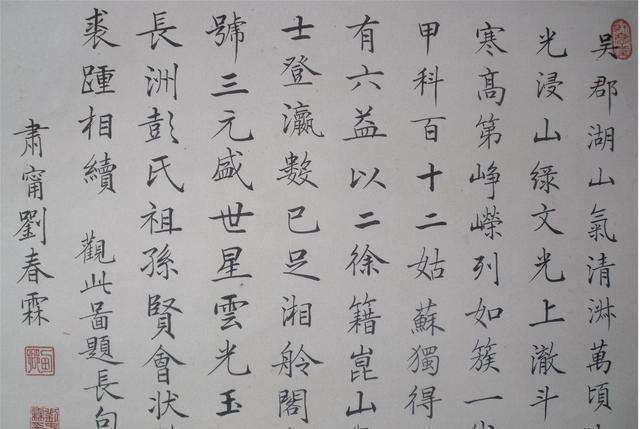 吴郡湖山氣清淑萬頃
光浸山绿文光上澈斗
寒高第峥嶸列如簇一
甲科百十二姑蘇獨得
有六益以二徐籍崑山
士登瀛数已足湘舲閣
號三元盛世星雲光玉
長洲彭氏祖孫賢會状
裘踵相續 觀此啚題長句
肅甯劉春霖